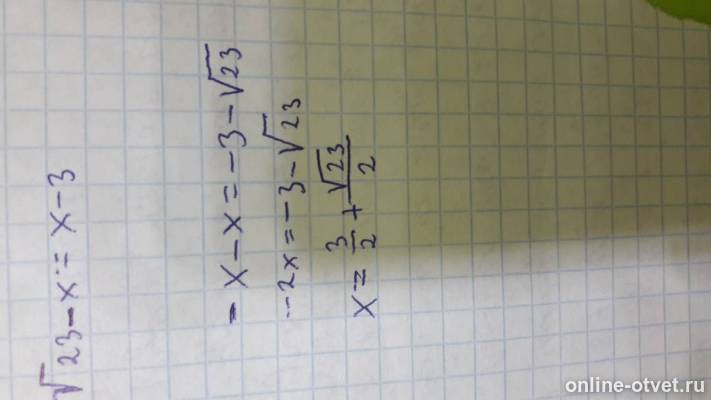 √23 - x = x - 3
- x - x = -3 - √23
-2x = -3 - √23
x = 3/2 + √23/2
online-otvet.ru